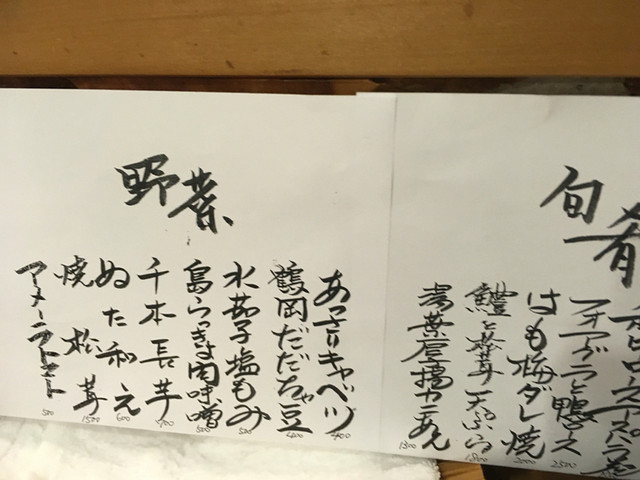 旬肴
フォアグラと鴨
はも梅ダレ焼 2000
鱧と松茸天ぷら 1800
1300
野菜
あっさりキャベツ 400
鶴岡だだちゃ豆 400
水茄子塩もみ 500
島らっきょ肉味噌 500
千本長芋 700
ぬた和え 600
焼松茸 1500
アメーラトマト 500